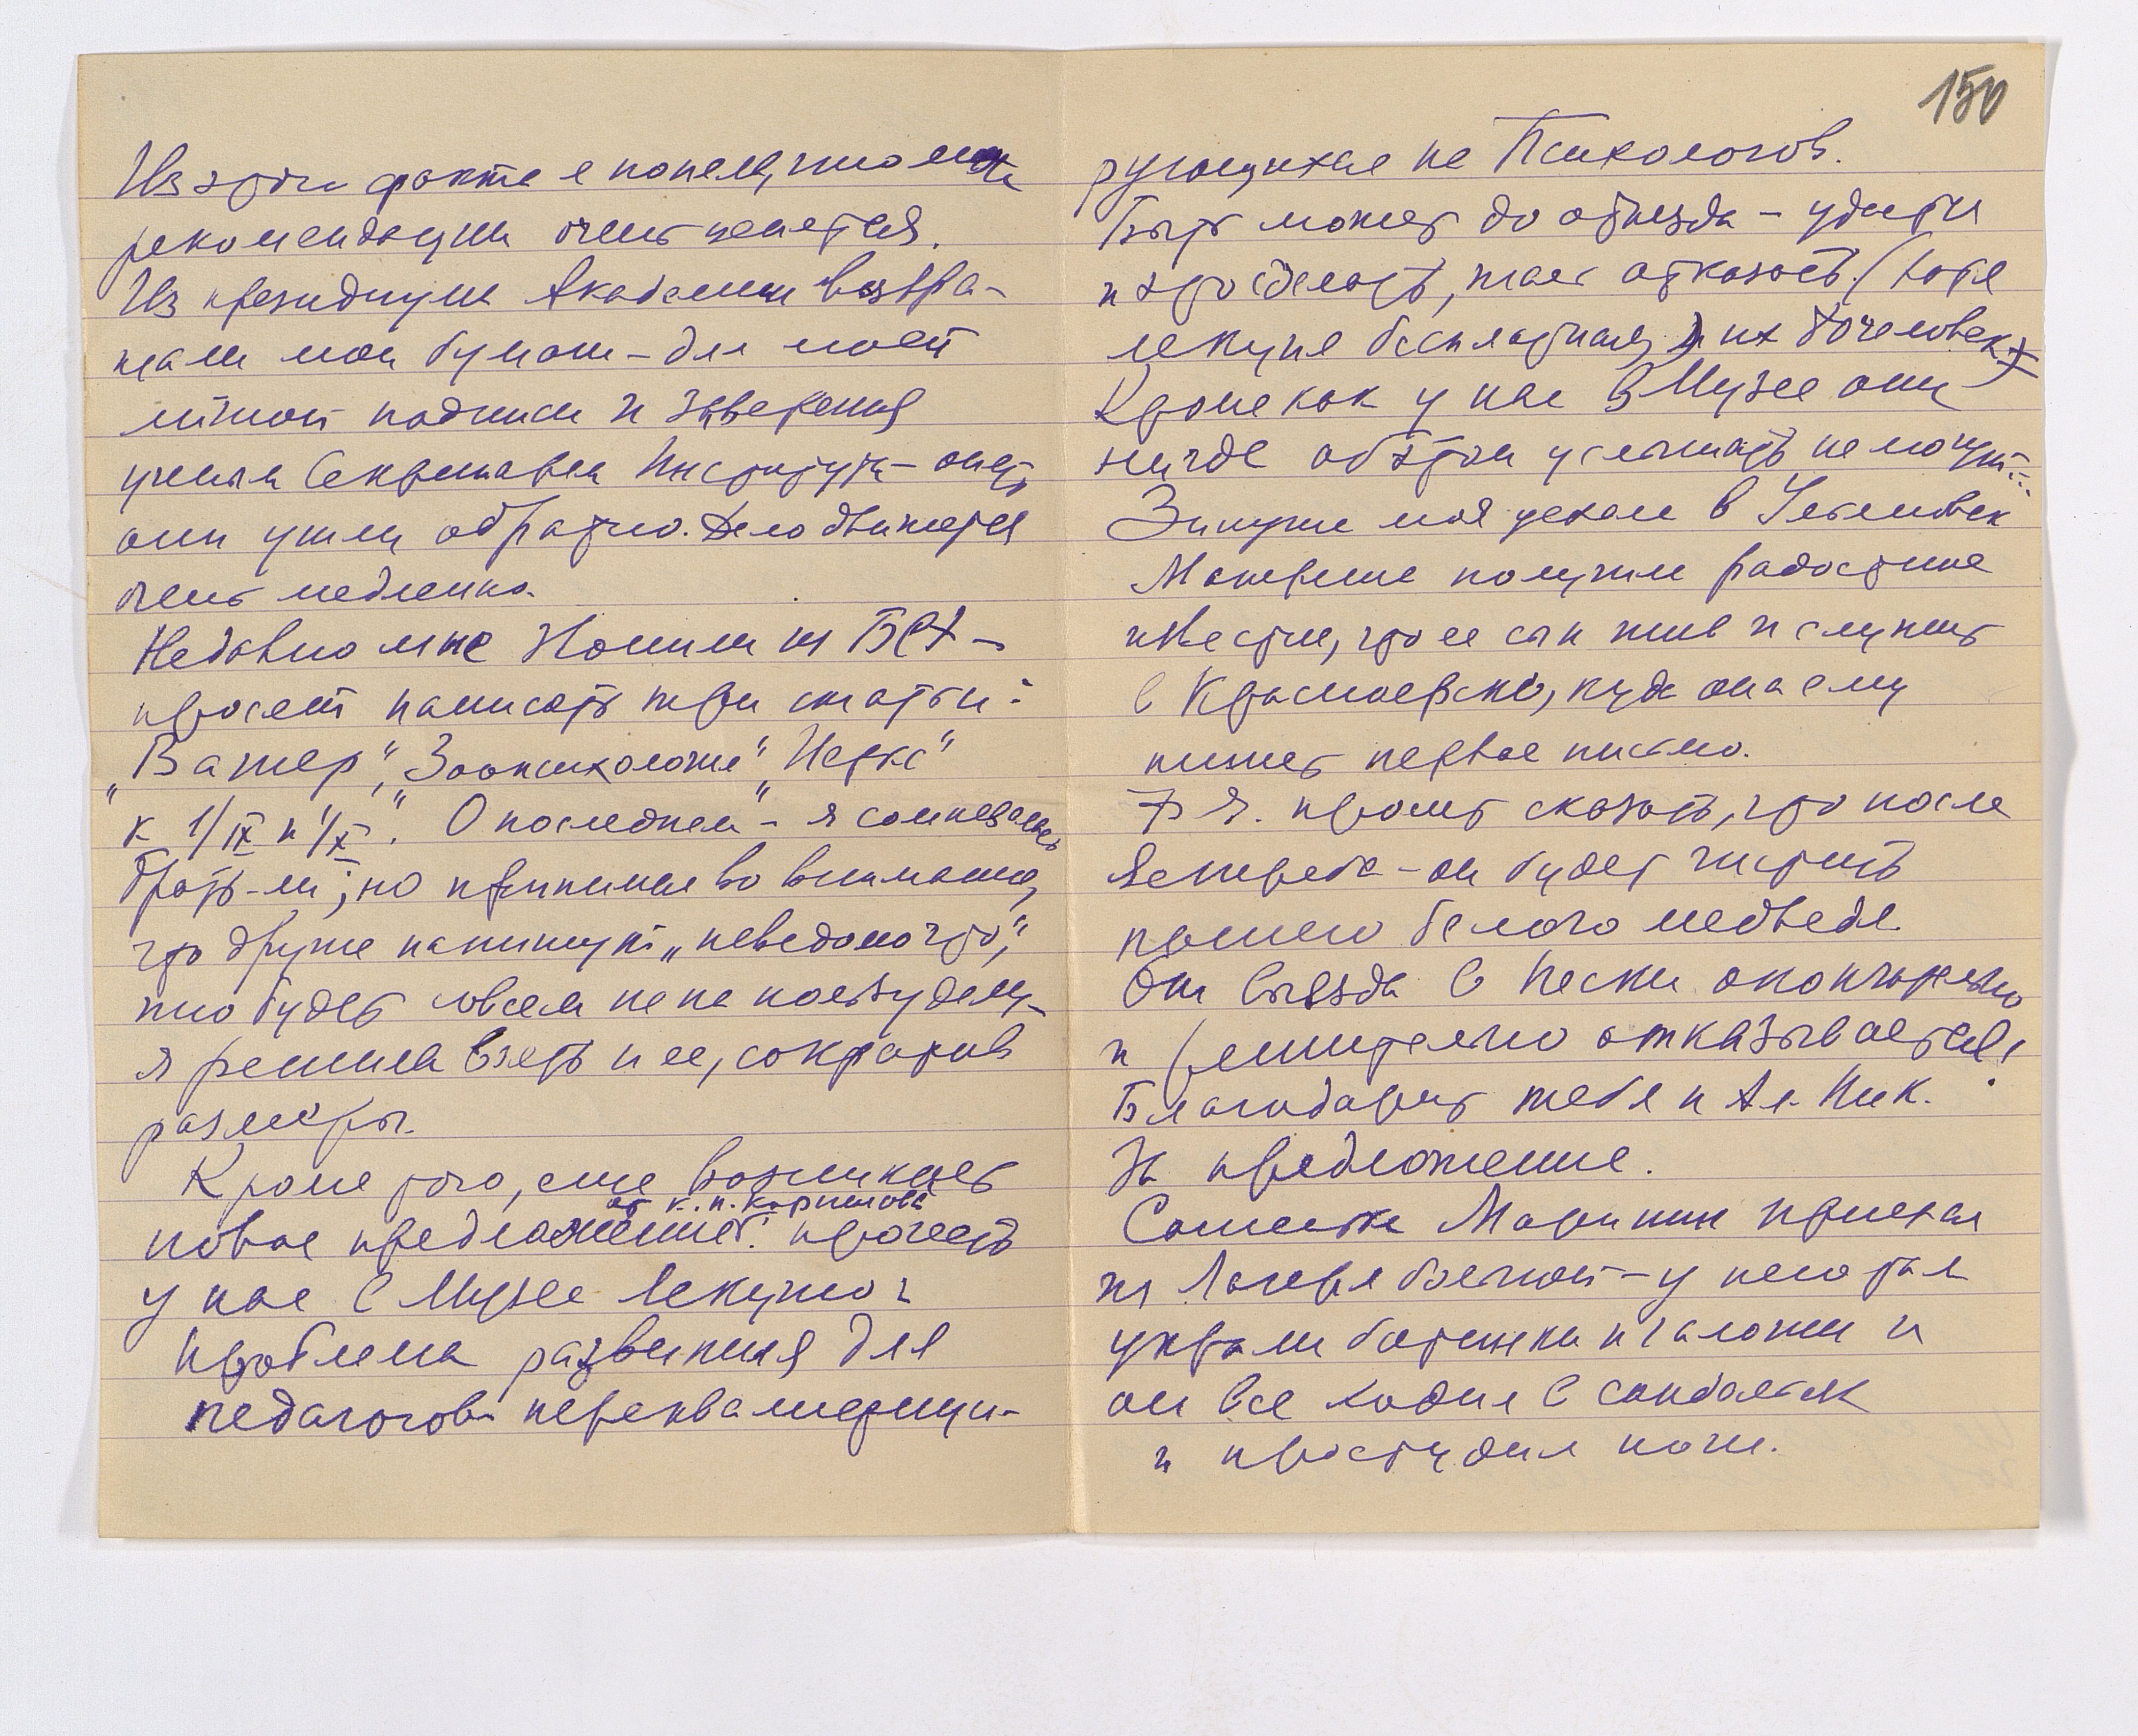 Из этого факта я поняла, что моя
рекомендация очень ценится.
Из президиума Академии возвра-
щали мои бумаги – для моей
личной подписи и заверения
ученым Секретарем Института – опять
они ушли обратно. Дело движется
очень медленно.
Недавно мне звонили из БСЭ –
просят написать три статьи:
„Вагнер", „Зоопсихология" „Иеркс"
к 1/IX и 1/X". О последнем – я сомневалась
брать-ли; но принимая во внимание,
что другие напишут „неведомо что",
что будет совсем не на пользу делу –
я решила взять и ее, сократив
размеры.
Кроме того, еще возникает
от К.Н. Корнилова
новое предложение: прочесть
у нас в Музее лекцию:
Проблема развития для
педагогов переквалифици-
150
рующихся на Психологов.
Быть может до отъезда – удастся
и это сделать, жаль отказать (хотя
лекция бесплатная, их 80 человек)
Кроме как у нас в Музее они
нигде об этом услышать не могут...
Зинуша моя уехала в Ульяновск
получили радостное
известие, что ее сын жив и служит
в Красноярске, куда она ему
пишет первое письмо.
просит сказать, что после
Ястреба – он будет чистить
нашего белого медведя.
От въезда в Пески окончательно
и решительно отказывается!
Благодарит тебя и Ал. Ник.
за предложение.
Маринин приехал
из Лагеря больной – у него там
украли ботинки и галоши и
он все ходил в сандалиях
и простудил ноги.